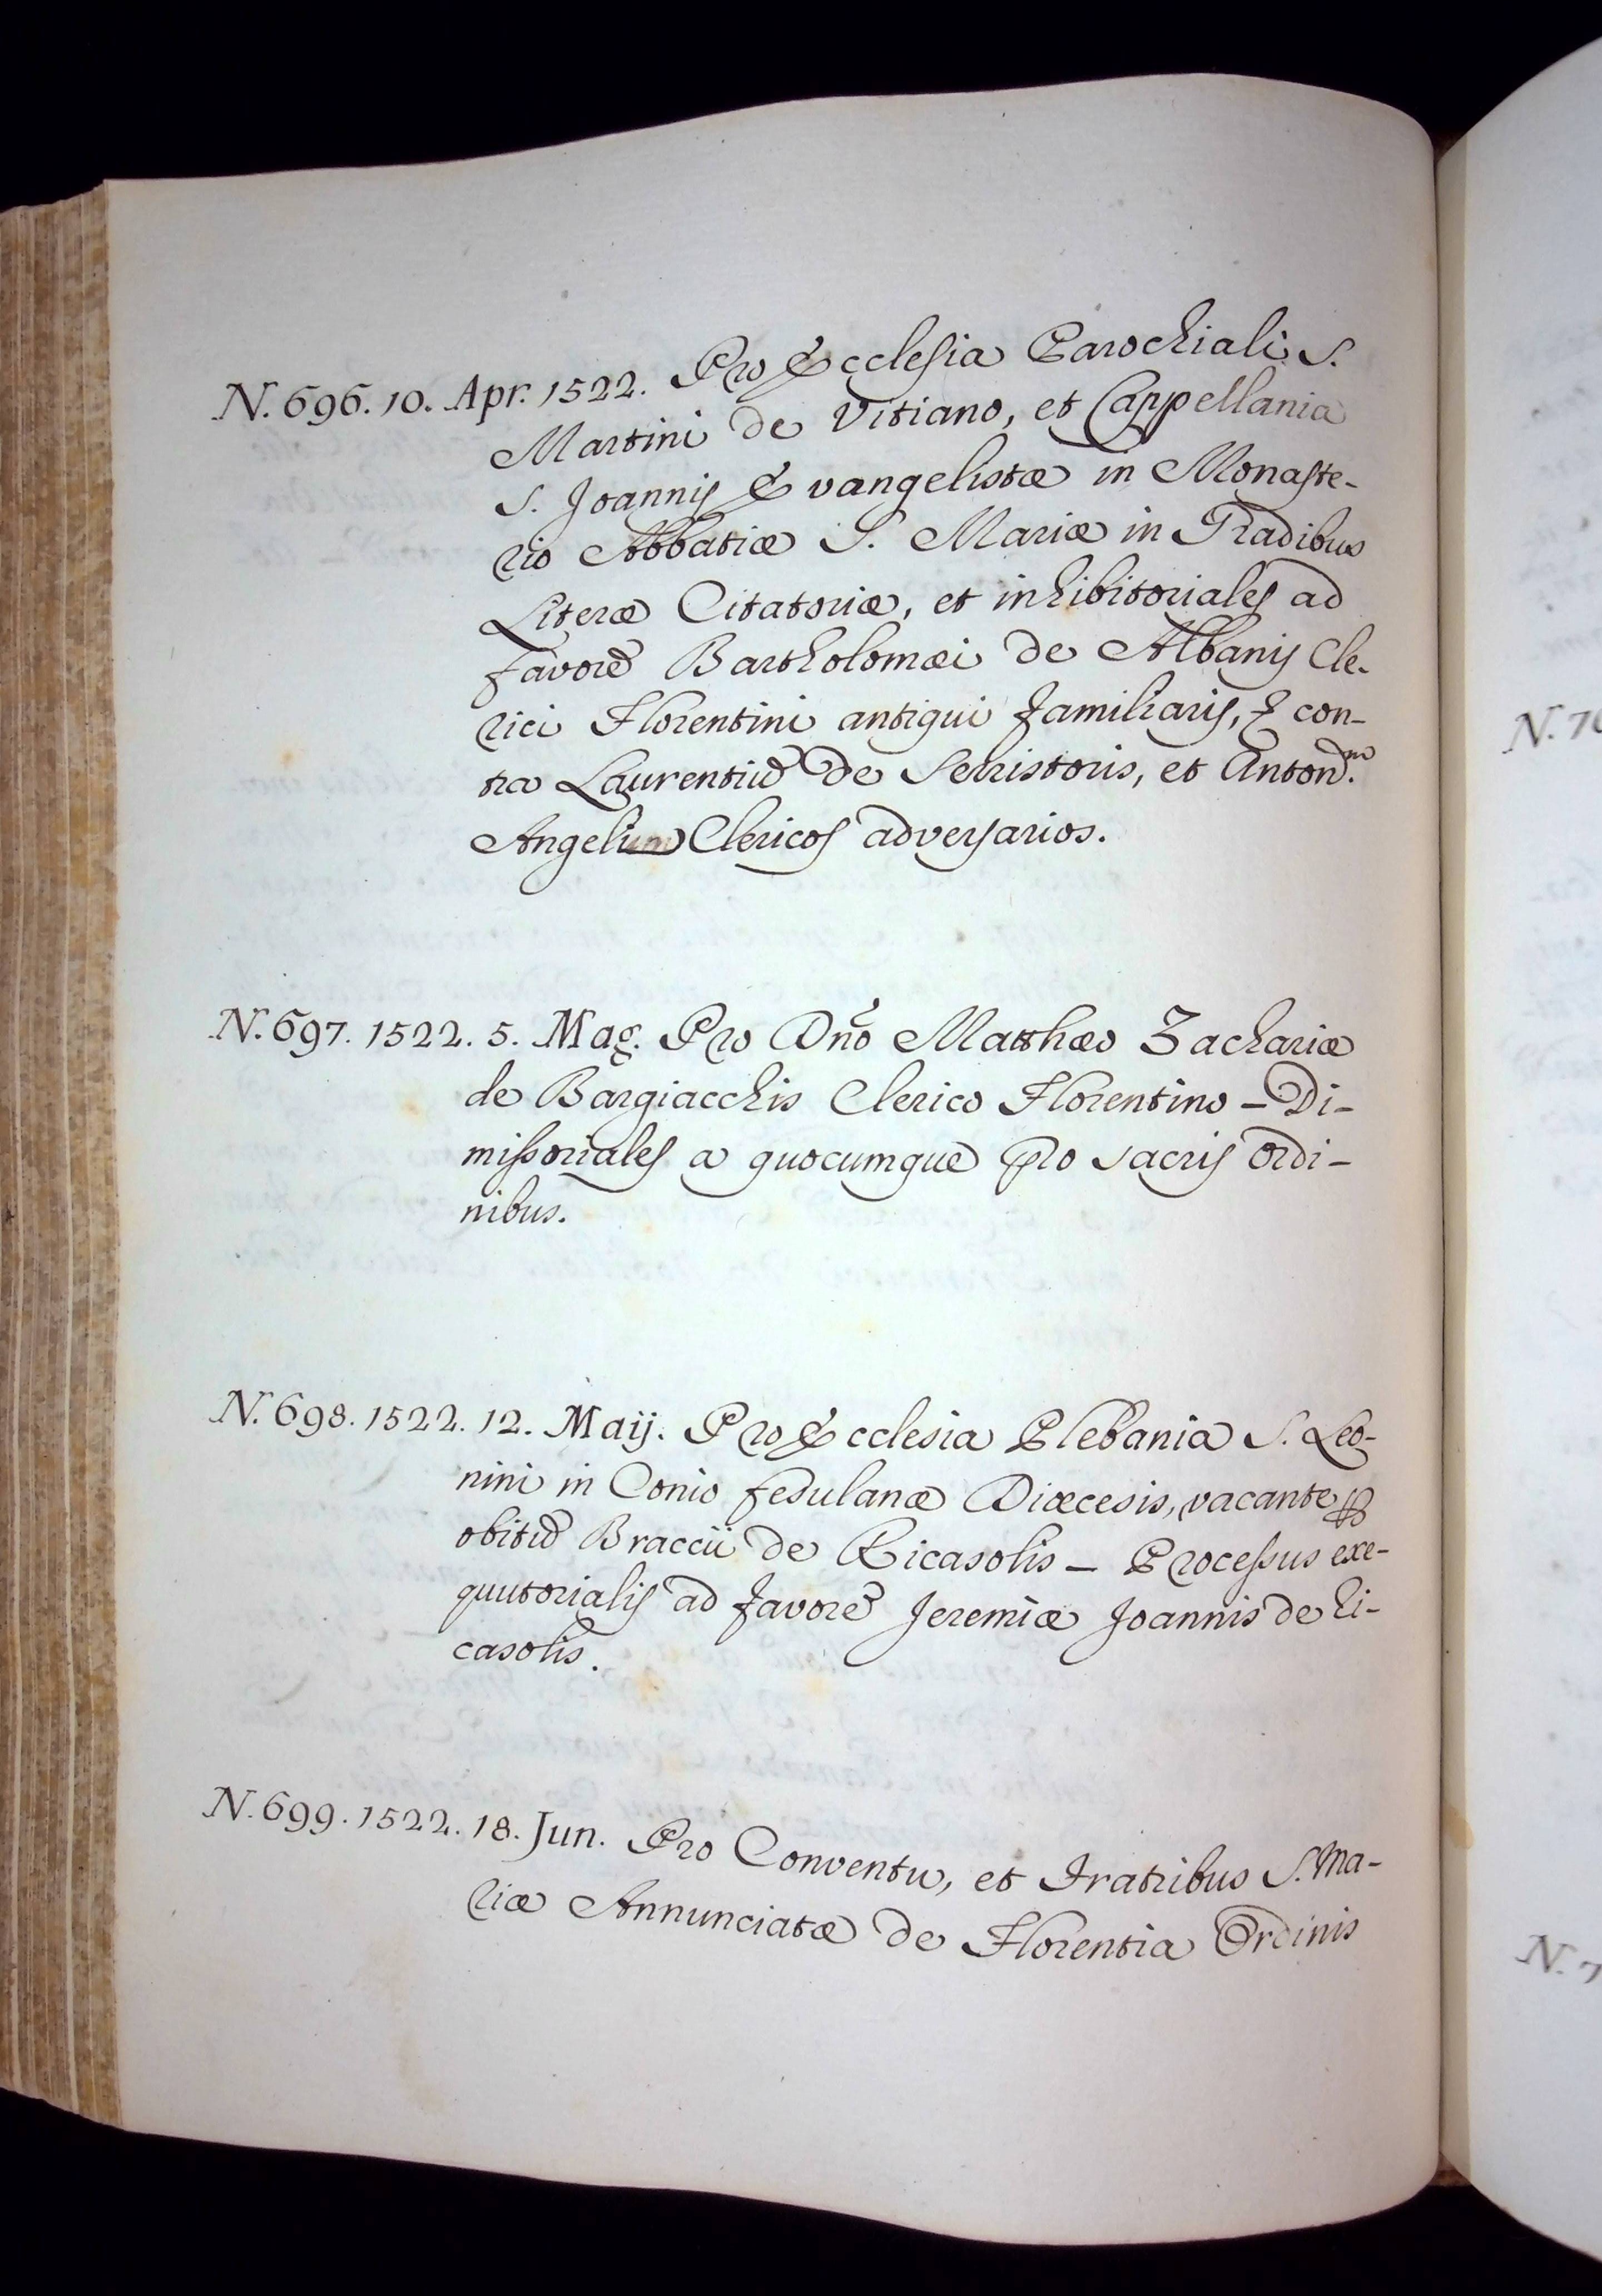 N. 696. 10. Apr. 1522. Pro Ecclesia Parochiali S.
Martini de Vitiano, et Cappellania
S. Joannis Evangelistæ in Monaste-
rio Abbatiæ S. Mariæ in Gradibus
Literæ Citatoriæ, et inhibitoriales ad
favorē Bartholomæi de Albanis Cle-
rici Florentini antiqui familiaris, & con-
tra Laurentiū de Serristoris, et Anton.m
Angelum Clericos adversarios.
N. 697. 1522. 5. Mag. Pro Dño Matthæo Zachariæ
de Bargiacchis Clerico Florentino – Di-
missoriales a quocumque pro sacris ordi-
nibus.
N. 698. 1522. 12. Maij. Pro Ecclesia Plebania S. Leo-
nini in Conio fesulanæ Diœcesis, vacante
obitū Braccii de Ricasolis – Processus exe-
quutorialis ad favorē Jeremiæ Joannis de Ri-
casolis.
N. 699. 1522. 18. Jun. Pro Conventu, et Fratribus S. Ma-
riæ Annunciatæ de Florentia Ordinis
N. 7
N. 7